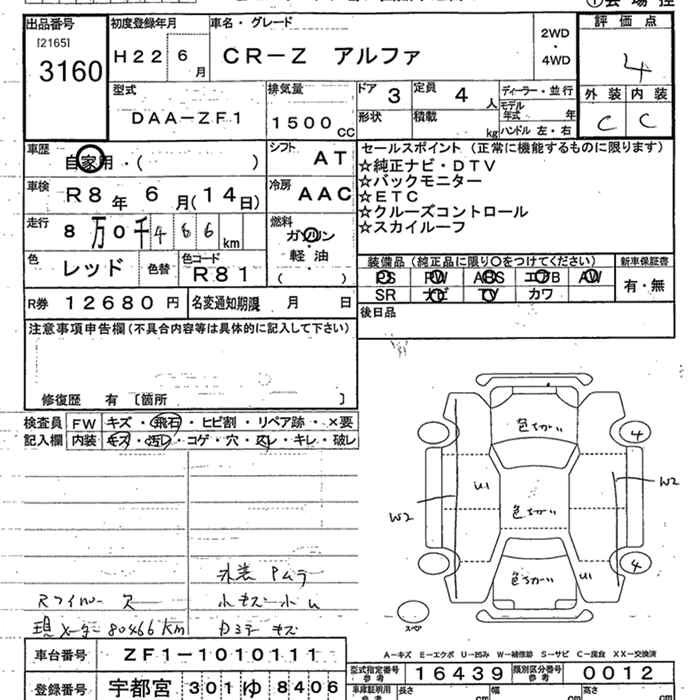 ① 会場控
出品番号 初度登録年月 車名・グレード 評価点
[2165]
3160 H22 6月 CR-Z アルファ 2WD・4WD 4
型式 排気量 ドア 3 定員 4人 ディーラー・並行 外装 内装
DAA-ZF1 1500cc 形状 積載 kg モデル年式 年 C C
ハンドル 左・右
車歴 自家用・( ) シフト AT セールスポイント (正常に機能するものに限ります)
☆純正ナビ・DTV
車検 R8年 6月(14日) 冷房 AAC ☆バックモニター
☆ETC
走行 8万0千466km 燃料 ガソリン ☆クルーズコントロール
☆スカイルーフ
色 レッド 色替 色コード R81 軽・油 ( ) 装備品 (純正品に限り○をつけてください) 新車保証書
PS PW ABS エアB AW 有・無
R券 12680円 名変通知期限 月 日 SR ナビ TV カワ
注意事項申告欄 (不具合内容等は具体的に記入して下さい) 後日品
修復歴 有 〔箇所 〕
検査員 FW キズ・飛石・ヒビ割・リペア跡・×要
記入欄 内装 キズ・汚レ・コゲ・穴・スレ・キレ・破レ
色ちがい
4
U1
W2
W2
色ちがい
4
色ちがい
U1
スペア
外装 PAラ
Rワイパー 欠 小キズ小ム
現メーター80466KM カミテ キズ
A-キズ E-エクボ U-凹み W-補修跡 S-サビ C-腐食 XX-交換済
車台番号 ZF1-1010111 型式指定番号 参考 16439 類別区分番号 参考 0012
登録番号 宇都宮 301 ゆ 8406 車庫証明用 参考 長さ cm 幅 cm 高さ cm